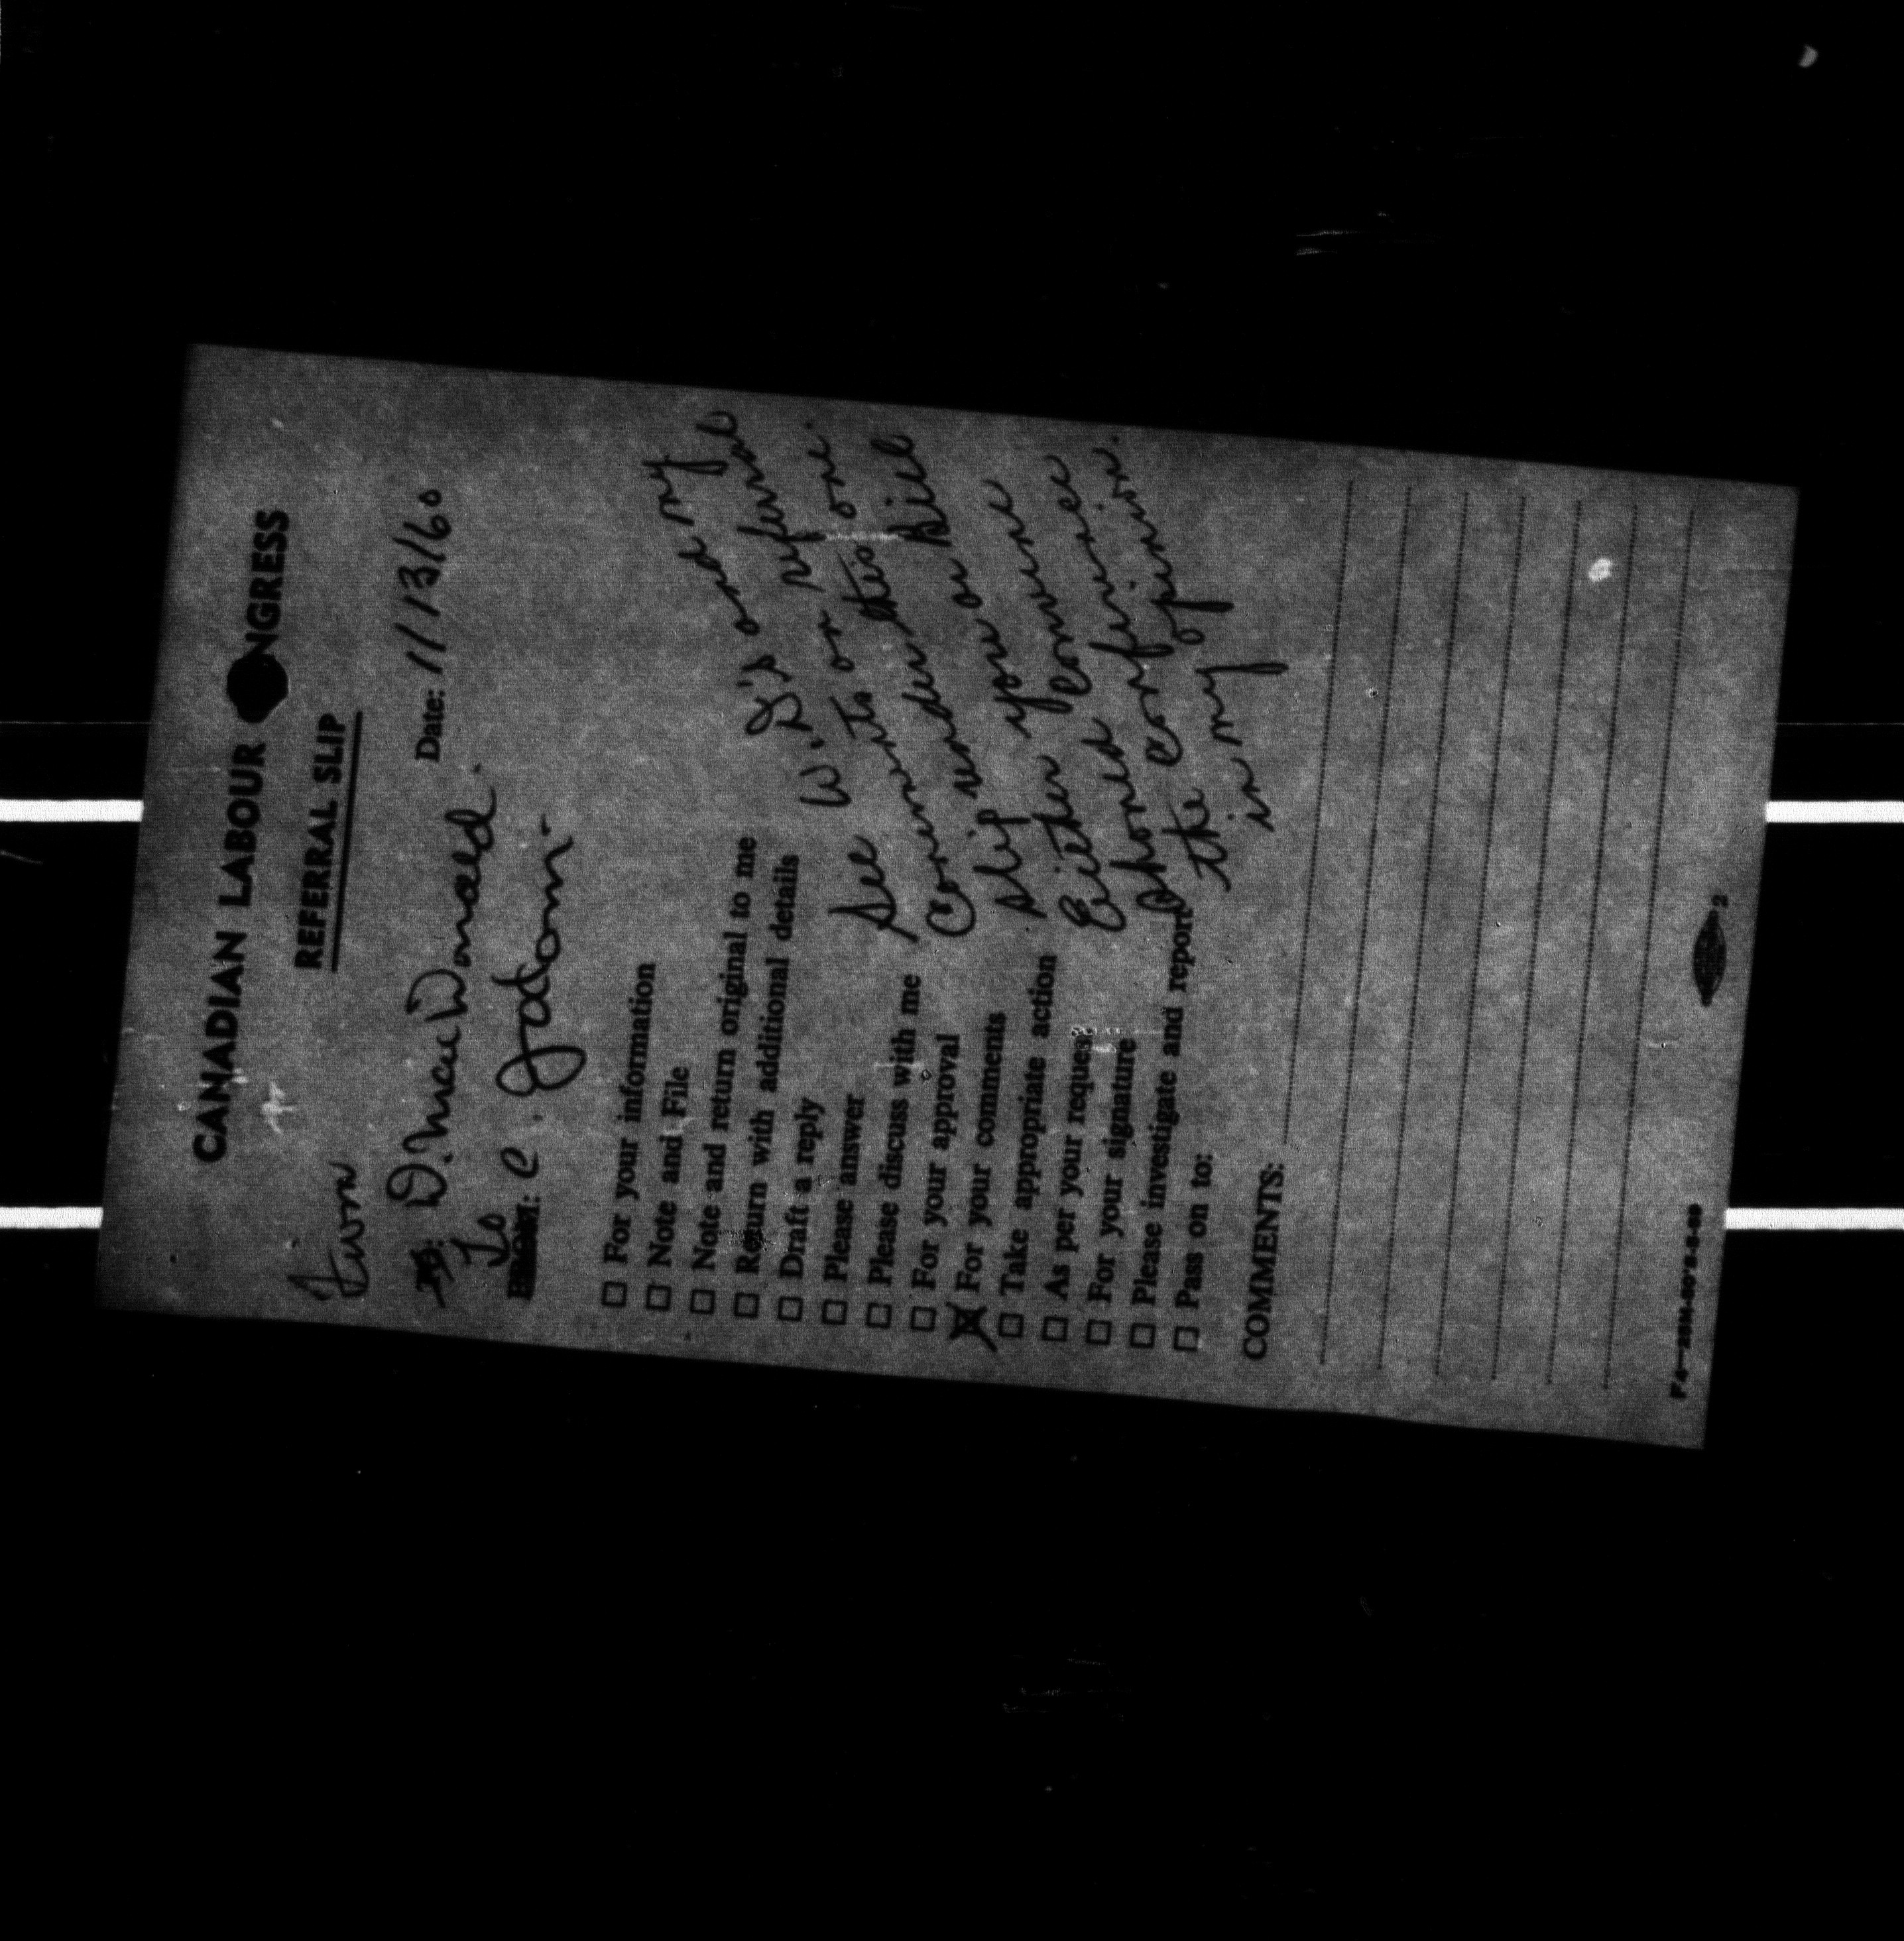 CANADIAN LABOUR CONGRESS
REFERRAL SLIP
From
TO: D. MacDonald. Date: 11/3/60
To
FROM: C. Jodoin
☐ For your information
☐ Note and File
☐ Note and return original to me
☐ Return with additional details
☐ Draft a reply
☐ Please answer
☐ Please discuss with me
☐ For your approval
☒ For your comments
☐ Take appropriate action
☐ As per your request
☐ For your signature
☐ Please investigate and report
☐ Pass on to:
See W.D.'s and my
Comments on referral
slip under this one.
Either you or Bill
should convince
the conference
in my opinion.
COMMENTS:
2